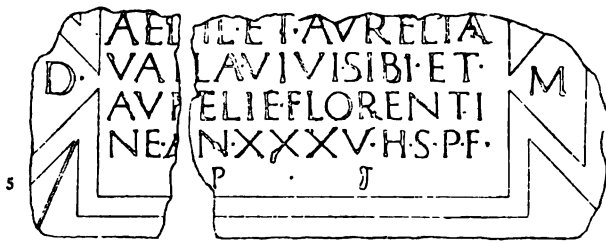 D · M
AEL IL · ET · AVRELIA
VA LAVIVISIBI · ET ·
AVRELIE · FLORENTI
NE · AN · XXXV · H · S · P · F ·
5 P · T